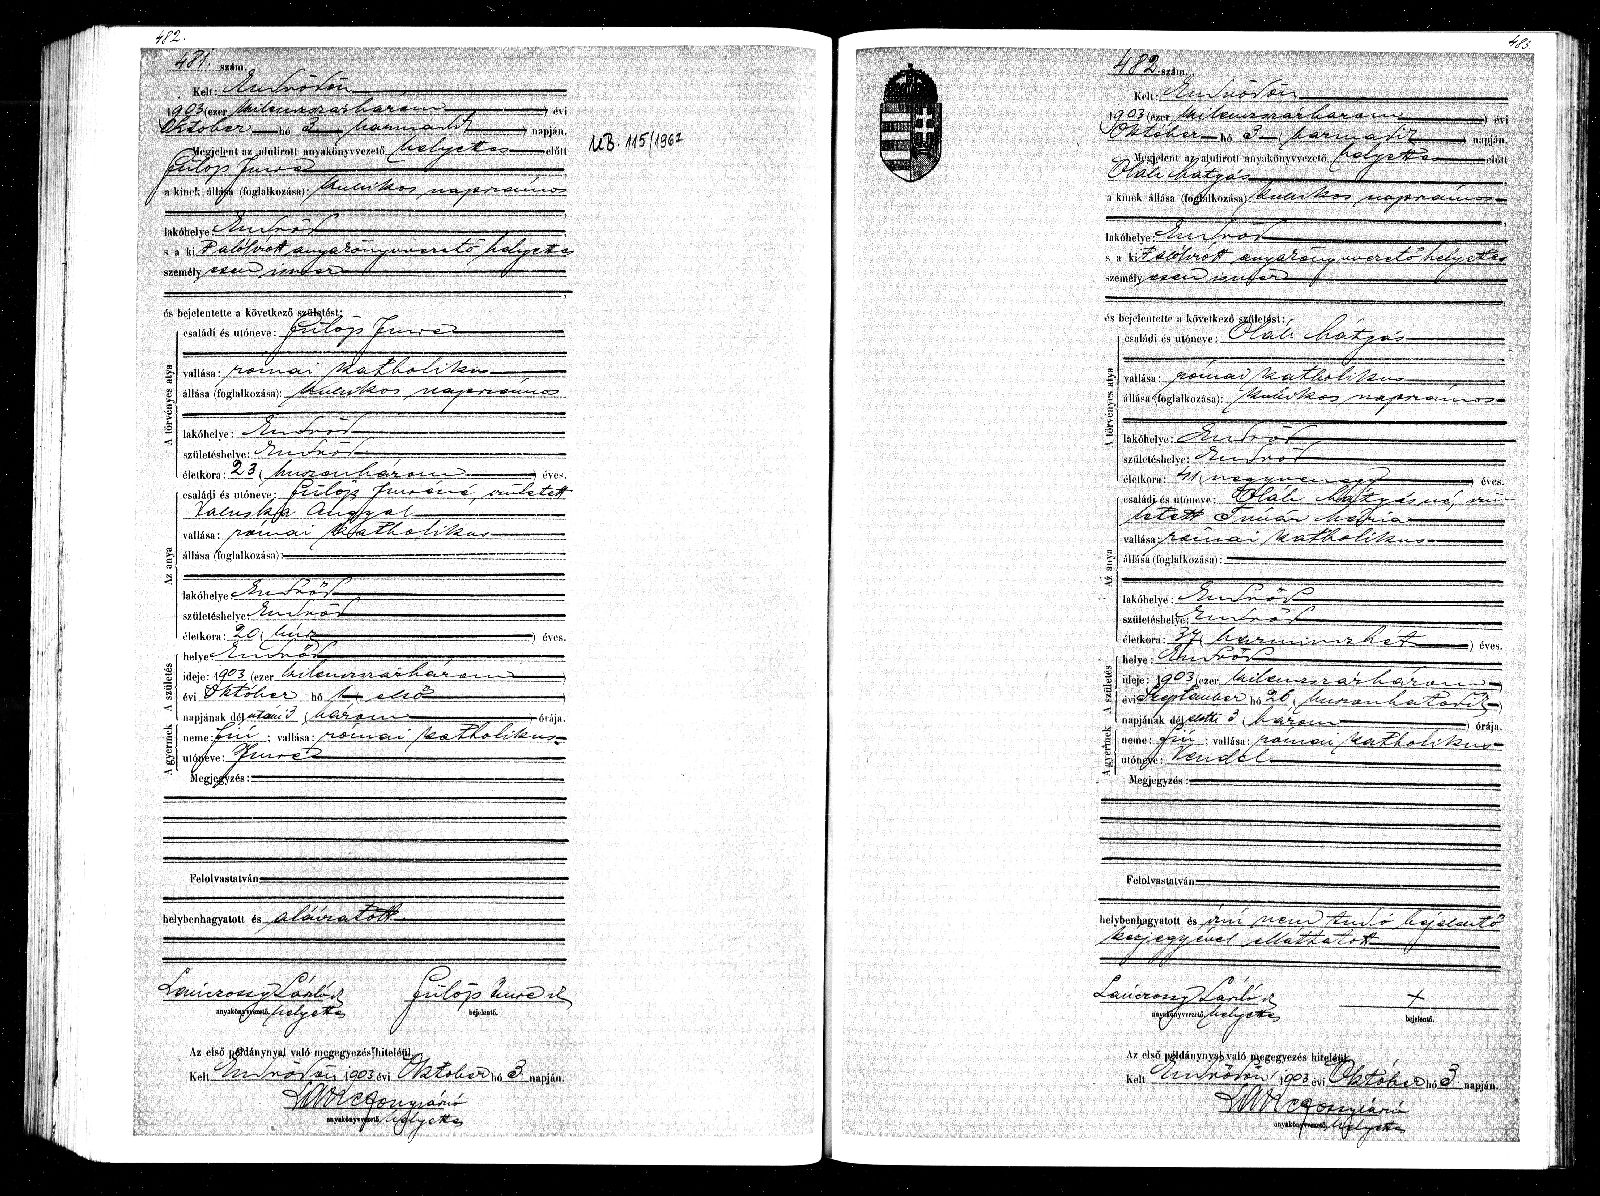 482.
481. szám.
Kelt: Endrődön
1903 (ezer kilenczszázhárom) évi
Október hó 3 harmadik napján.
Megjelent az alulirott anyakönyvvezető helyettes előtt
Fülöp Imre
a kinek állása (foglalkozása): kukrikos, napszámos
lakóhelye: Endrőd
s a ki Palólirott anyakönyvvezető helyettes
személyesen ismer
és bejelentette a következő születést:
A törvényes atya
családi és utóneve: Fülöp Imre
vallása: római katholikus
állása (foglalkozása): kukrikos napszámos
lakóhelye: Endrőd
születéshelye: Endrőd
életkora: 23 (huszonhárom) éves.
Az anya
családi és utóneve: Fülöp Imréné, született
Valuska Angyal
vallása: római katholikus
állása (foglalkozása):
lakóhelye: Endrőd
születéshelye: Endrőd
életkora: 20 (húsz) éves.
A születés
helye: Endrőd
ideje: 1903 (ezer kilenczszázhárom)
évi Október hó 1 első
napjának dél utáni 3 (három) órája.
A gyermek
neme: fiú; vallása: római katholikus
utóneve: Imre
Megjegyzés:
Felolvastatván
helybenhagyatott és aláiratott
László Fülöp Imre
anyakönyvvezető. helyettes bejelentő.
Az első példánynyal való megegyezés hiteléül
Kelt Endrődön 1903 évi Október hó 3 napján.
anyakönyvvezető. helyettes
MB. 115/1962
483
482 szám.
Kelt: Endrődön
1903 (ezer kilenczszázhárom) évi
Október hó 3 harmadik napján.
Megjelent az alulirott anyakönyvvezető helyettes előtt
Oláh Mátyás
a kinek állása (foglalkozása): kukrikos, napszámos
lakóhelye: Endrőd
s a ki Palólirott anyakönyvvezető helyettes
személyesen ismer
és bejelentette a következő születést:
A törvényes atya
családi és utóneve: Oláh Mátyás
vallása: római katholikus
állása (foglalkozása): kukrikos napszámos
lakóhelye: Endrőd
születéshelye: Endrőd
életkora: 41 (negyvenegy) éves.
Az anya
családi és utóneve: Oláh Mátyásné, szü-
letett Tímár Mária
vallása: római katholikus
állása (foglalkozása):
lakóhelye: Endrőd
születéshelye: Endrőd
életkora: 37 (harminczhét) éves.
A születés
helye: Endrőd
ideje: 1903 (ezer kilenczszázhárom)
évi Szeptember hó 26 (huszonhatodik)
napjának dél előtti 3 (három) órája.
A gyermek
neme: fiú; vallása: római katholikus
utóneve: Vendel
Megjegyzés:
Felolvastatván
helybenhagyatott és írni nem tudó bejelentő
kézjegyével elláttatott
László +
anyakönyvvezető. helyettes bejelentő.
Az első példánynyal való megegyezés hiteléül
Kelt Endrődön 1903 évi Október hó 3 napján.
anyakönyvvezető. helyettes